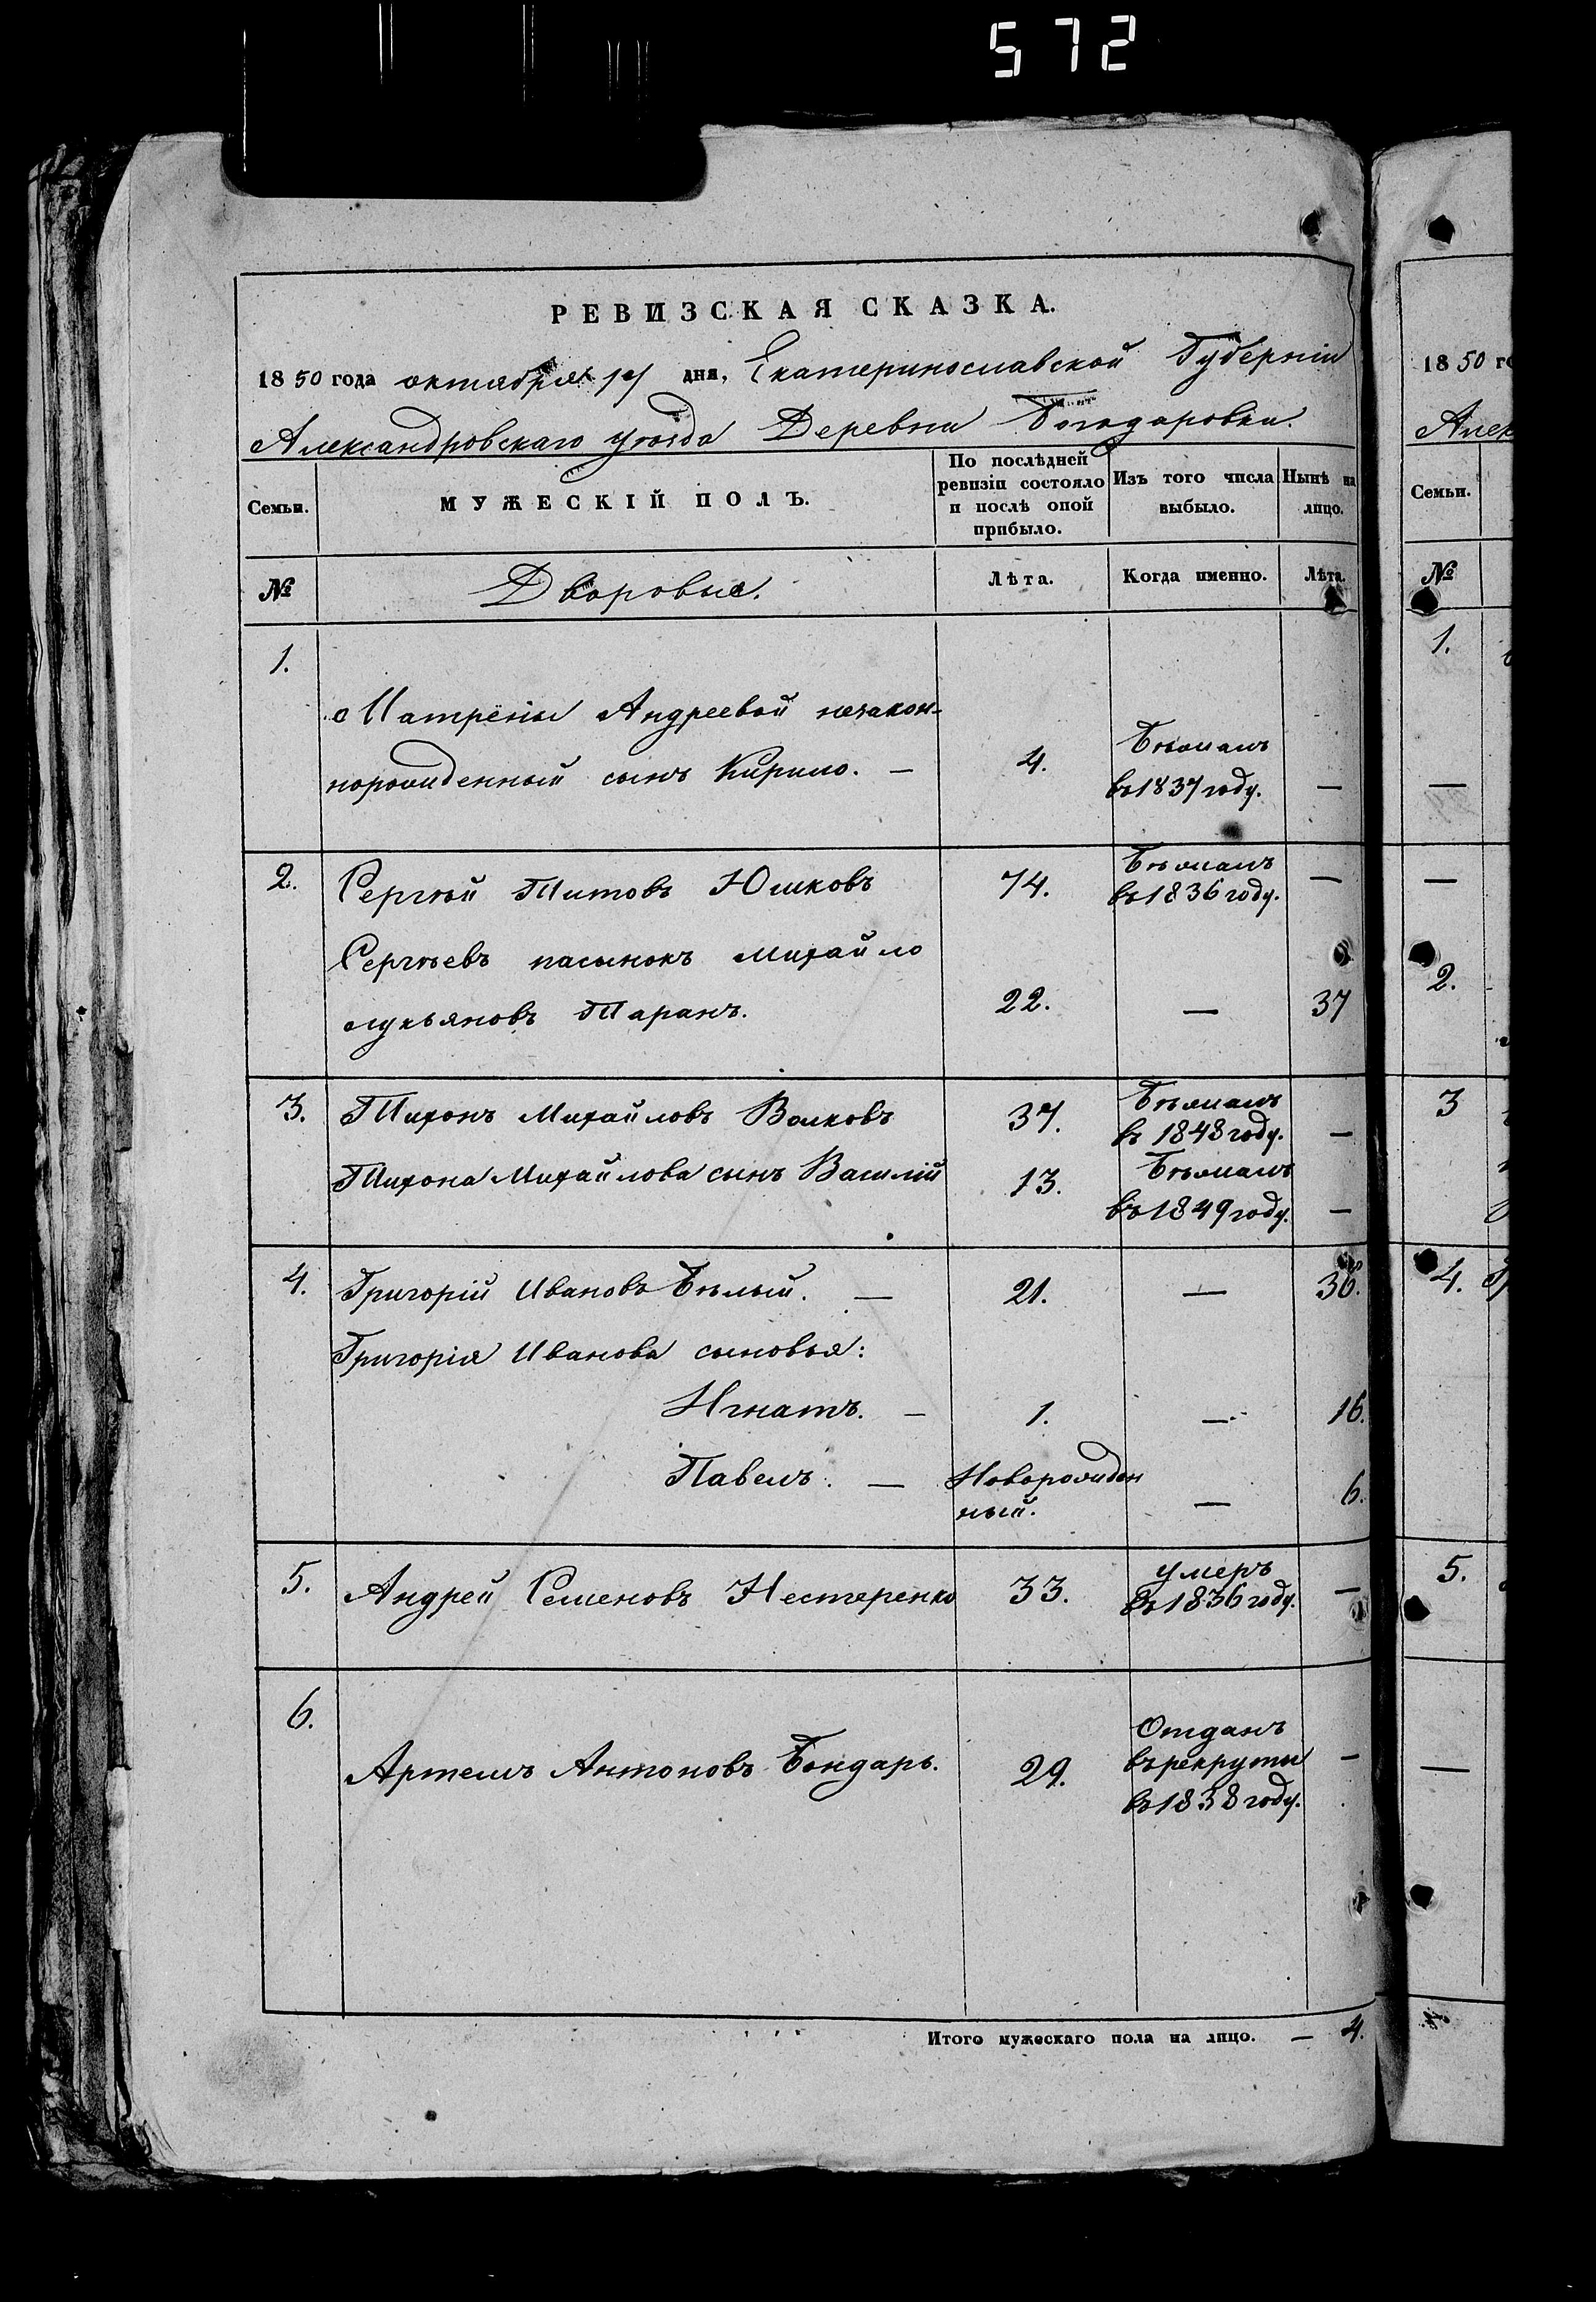 572
РЕВИЗСКАЯ СКАЗКА.
1850 года октября дня, Екатеринославской Губерніи
Александровскаго уѣзда Деревни Богодаровки.
Семьи.
МУЖЕСКІЙ ПОЛЪ.
По послѣдней ревизіи состояло и послѣ оной прибыло.
Изъ того числа выбыло.
Нынѣ на лицо.
№
Дворовые.
Лѣта.
Когда именно.
Лѣта.
1.
Матрены Андреевой незакон-
норожденный сынъ Кирило. — 4. Бѣжалъ
въ 1837 году. —
2. Сергѣй Титовъ Юшковъ 74. Бѣжалъ
въ 1836 году. —
Сергѣевъ пасынокъ Михайло
Лукьяновъ Таранъ. 22. — 37
3. Тихонъ Михайловъ Волковъ 37. Бѣжалъ
въ 1848 году. —
Тихона Михайлова сынъ Василій 13. Бѣжалъ
въ 1849 году. —
4. Григорій Ивановъ Бѣлый. — 21. — 36.
Григорія Иванова сыновья:
Игнатъ. — 1. — 16.
Павелъ. — Новорожден
ный. — 6.
5. Андрей Семеновъ Нестеренко 33. умеръ
въ 1836 году. —
6.
Артемъ Антоновъ Бондарь. 29. Отданъ
въ рекруты —
въ 1838 году.
Итого мужескаго пола на лицо. — 4.
1850 го
Алек
Семьи.
№
1.
—
—
2.
3
4. Гр
5.
—